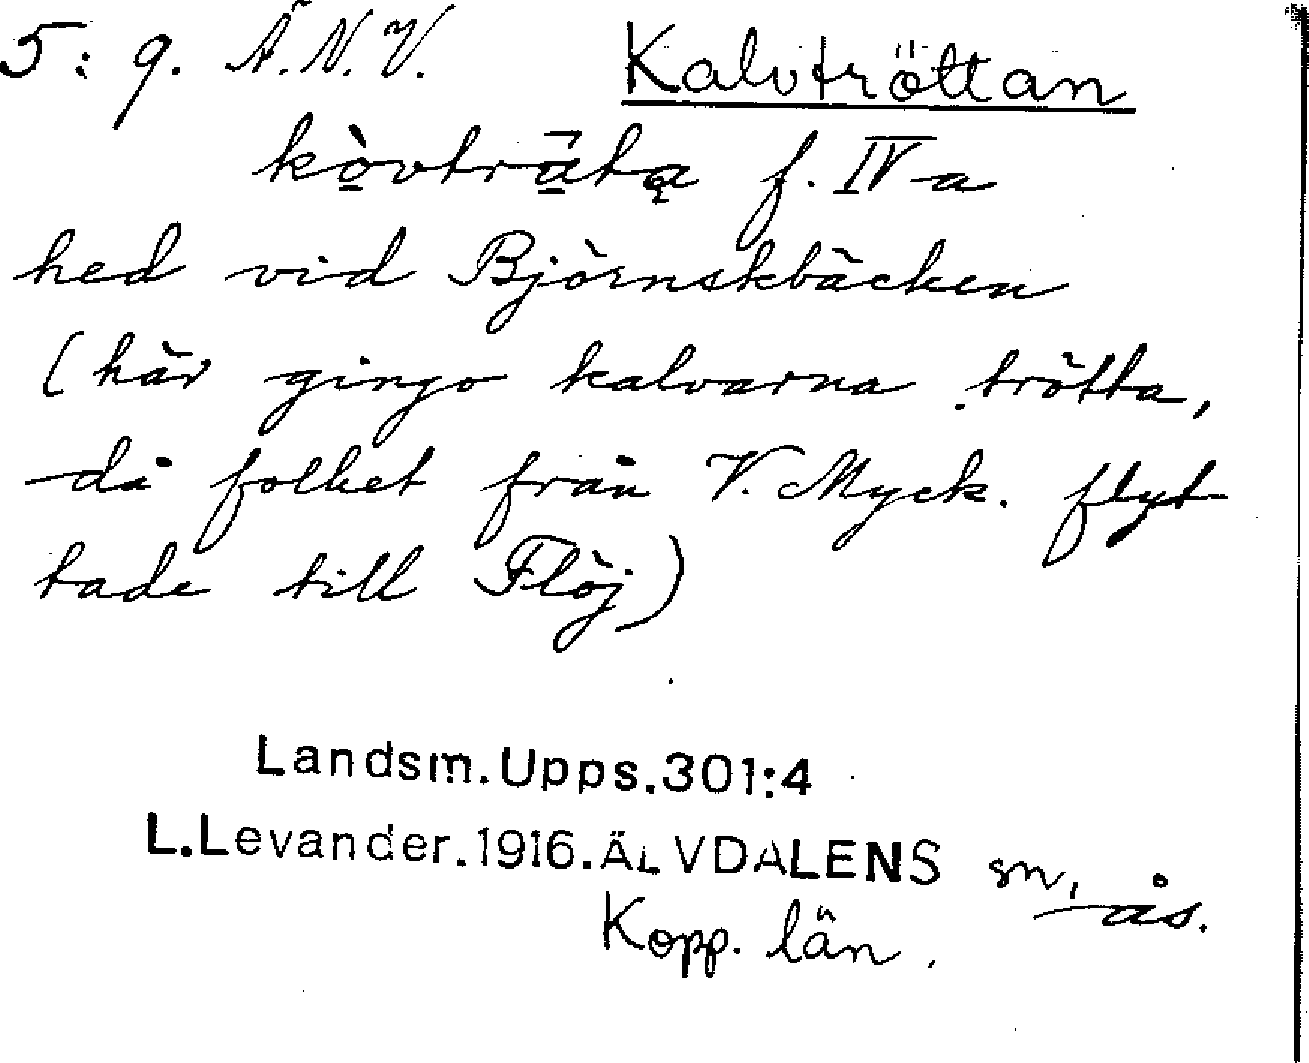 5:9. Ä.N.V. Kalvtröttan
kòvträ̀ta f. IV a
hed vid Björnskbäcken
(här gingo kalvarna trötta,
då folket från V. Myck. flyt
tade till Flöj)
Landsm.Upps.301:4
L.Levander.1916.ÄLVDALENS sn, ås.
Kopp. län.